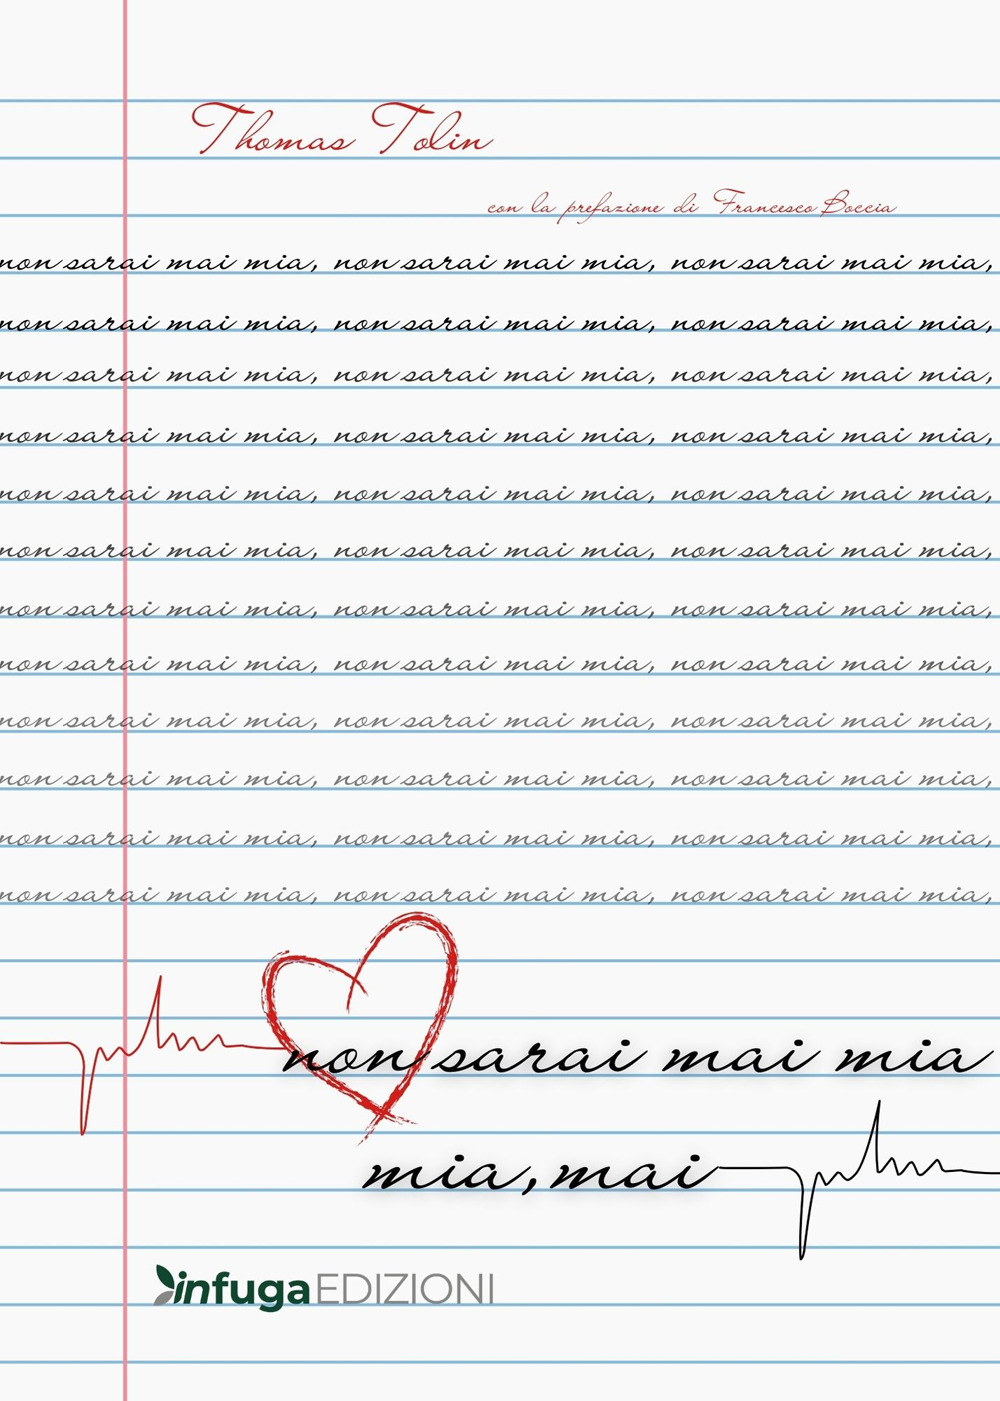 Thomas Tolin
con la prefazione di Francesco Boccia
non sarai mai mia, non sarai mai mia, non sarai mai mia,
non sarai mai mia, non sarai mai mia, non sarai mai mia,
non sarai mai mia, non sarai mai mia, non sarai mai mia,
non sarai mai mia, non sarai mai mia, non sarai mai mia,
non sarai mai mia, non sarai mai mia, non sarai mai mia,
non sarai mai mia, non sarai mai mia, non sarai mai mia,
non sarai mai mia, non sarai mai mia, non sarai mai mia,
non sarai mai mia, non sarai mai mia, non sarai mai mia,
non sarai mai mia, non sarai mai mia, non sarai mai mia,
non sarai mai mia, non sarai mai mia, non sarai mai mia,
non sarai mai mia, non sarai mai mia, non sarai mai mia,
non sarai mai mia, non sarai mai mia, non sarai mai mia,
non sarai mai mia
mia, mai
infuga EDIZIONI